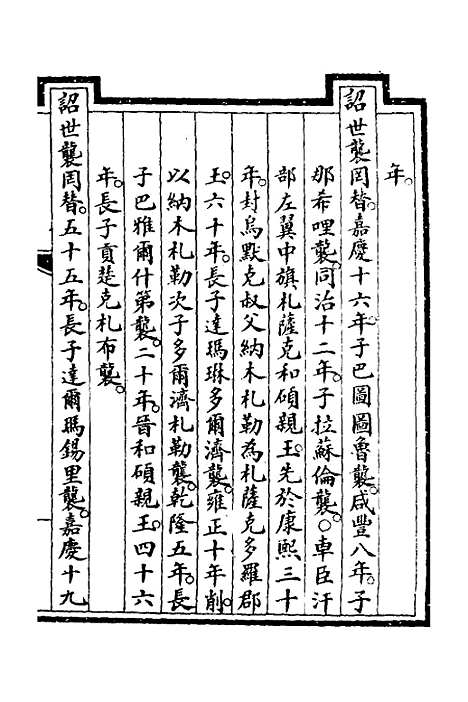 年。
詔世襲罔替。嘉慶十六年子巴圖圖魯襲。咸豐八年。子
那希哩襲。同治十二年。子拉蘇倫襲。○車臣汗
部左翼中旗札薩克和碩親王。先於康熙三十
年。封烏默克叔父納木札勒為札薩克多羅郡
王。六十年。長子達瑪琳多爾濟襲。雍正十年削。
以納木札勒次子多爾濟札勒襲。乾隆五年。長
子巴雅爾什第襲。二十年。晉和碩親王。四十六
年。長子貢楚克札布襲。
詔世襲罔替。五十五年。長子達爾瑪錫里襲。嘉慶十九